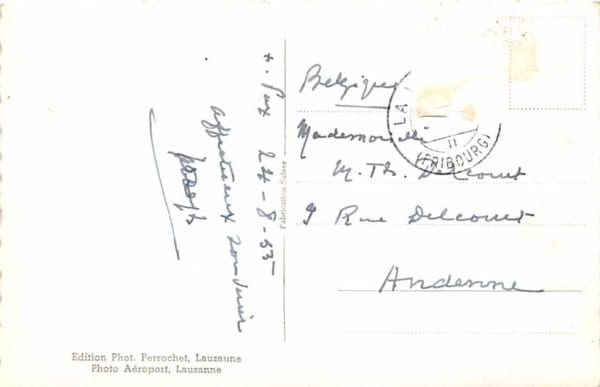 + Pax 24-8-55
affectueux souvenir
Joseph
Edition Phot. Perrochet, Lausanne
Photo Aéroport, Lausanne
Fabrication Suisse
Belgique
LA
II
(FRIBOURG)
Mademoiselle
M. Th. Delcourt
9 Rue Delcourt
Andenne